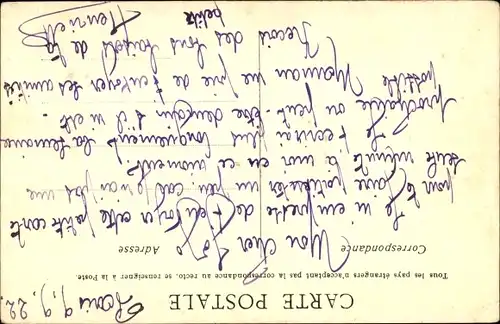 Paris 9.9.22.
CARTE POSTALE
Tous les pays étrangers n'acceptant pas la correspondance au recto, se renseigner à la Poste.
Correspondance
Adresse
Mon cher Jojo
Je m'empresse de t'envoyer cette petite carte
pour te faire patienter un peu car je n'ai pas une
seule minute à moi en ce moment
Je t'écrirai plus longuement la semaine
prochaine ou peut-être demain si il est
possible
Maman me prie de t'envoyer ses amitiés
Reçois des bons baisers de ta
petite
Henriette